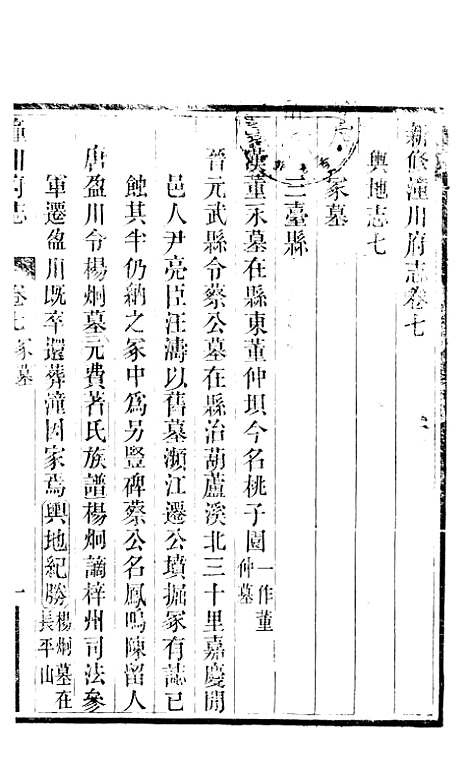 新修潼川府志卷七
輿地志七
冢墓
三臺縣
漢董永墓在縣東董仲垻今名桃子園一作董仲墓
晉元武縣令蔡公墓在縣治葫蘆溪北三十里嘉慶閒
邑人尹亮臣汪濤以舊墓瀕江遷公墳掘冢有誌已
蝕其半仍納之冢中爲另豎碑蔡公名鳳鳴陳留人
唐盈川令楊炯墓元費著氏族譜楊炯謫梓州司法參
軍遷盈川既卒還葬潼因家焉輿地紀勝楊炯墓在長平山
潼川府志
卷七冢墓
一